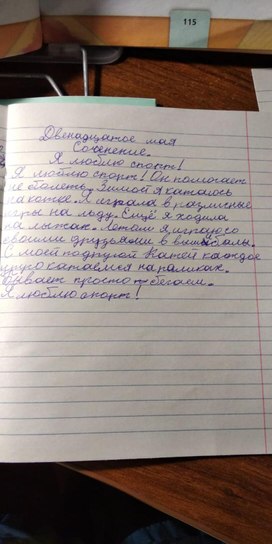 115
Двенадцатое мая
Соченение.
Я люблю спорт!
Я люблю спорт! Он помогает
не болеть. Зимой я катаюсь
на коньке. Я играла в различные
игры на льду. Ещё я ходила
на лыжах. Летом я играю со
своими друзьями в вышибалы.
С моей подругой Катей каждое
утро катаемся на роликах.
Бывает просто бегаем.
Я люблю спорт!